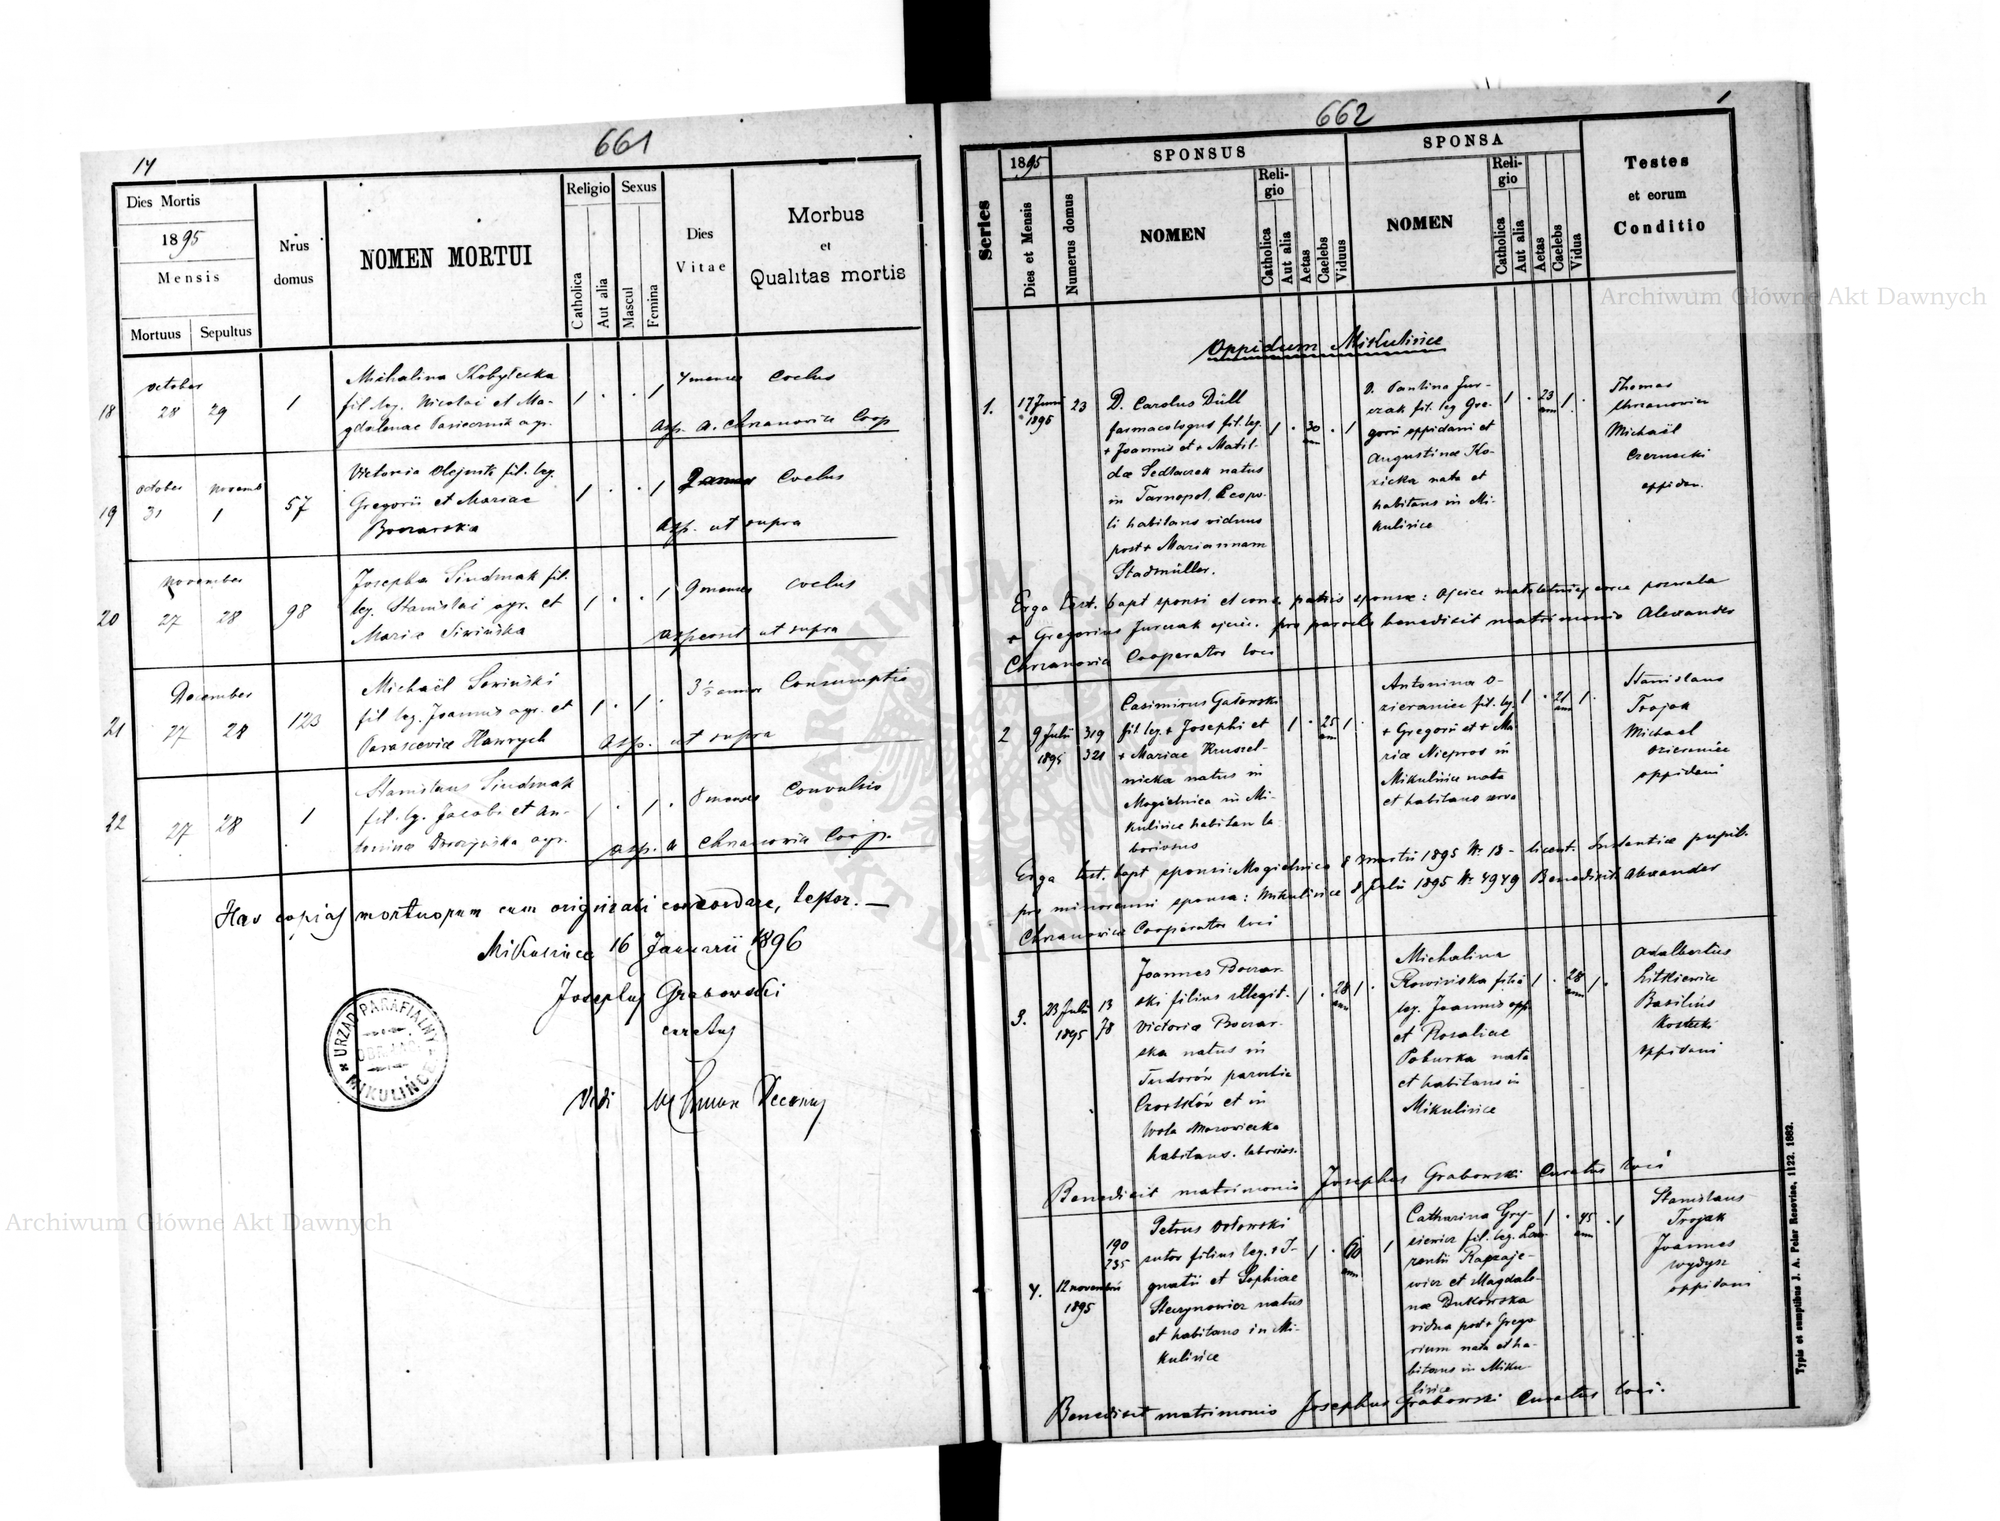 661
14
Dies Mortis
1895
Mensis
Mortuus
Sepultus
Nrus domus
NOMEN MORTUI
Religio
Catholica
Aut alia
Sexus
Mascul
Femina
Dies Vitae
Morbus
et
Qualitas mortis
18
october
28 29
1
Michalina Kobyłecka
fil. leg. Nicolai et Ma-
gdalenae agr.
1 . . 1
4 menses
Coclus
Asp. A. Chrzanowicz Coop
19
october novemb
31 1
57
Victoria Olejnik fil. leg.
Gregorii et Mariae
Boczarska
1 . . 1
Coclus
Asp. ut supra
20
november
27 28
98
Josepha Sindmak fil.
leg. Stanislai agr. et
Maria Siwińska
1 . . 1
9 menses
Coclus
ut supra
21
December
27 28
123
Michaël Sowiński
fil leg. Joannis agr. et
Parasceviae Hawrych
1 . 1 .
Consumptio
Asp. ut supra
22
27 28
1
Stanislaus Sindmak
fil. leg. Jacobi et An-
toninae agr.
1 . 1 .
8 menses
Convulsio
Asp. A Chrzanowicz Coop.
Has copias mortuorum cum originali concordare, testor. —
Mikulince 16 Januarii 1896
Josephus Grabowski
curatus
URZĄD PARAFIALNY
MIKULIŃCE
Vidi
Decanus
662
1
Series
1895
Dies et Mensis
Numerus domus
SPONSUS
NOMEN
Religio
Catholica
Aut alia
Aetas
Caelebs
Viduus
SPONSA
NOMEN
Religio
Catholica
Aut alia
Aetas
Caelebs
Vidua
Testes
et eorum
Conditio
Oppidum Mikulińce
1.
17 Junii
1895
23
D. Carolus Düll
farmacologus fil. leg.
+ Joannis et + Matil-
dae Sedlaczek natus
in Tarnopol, Leopo-
li habitans viduus
post + Mariannam
Stadmüller.
1 . 30 ann . 1
D. Paulina Jur-
czak fil. leg Gre-
gorii oppidani et
Augustinae Ko-
zicka nata et
habitans in Mi-
kulińce
1 . 23 ann 1 .
Thomas
Chrzanowicz
Michaël
Czernecki
oppidan.
Erga test. bapt sponsi et cons. patris sponsae: Ojciec małoletniej córce pozwala
+ Gregorius Jurczak ojciec. pro parocho benedixit matrimonio Alexander
Chrzanowicz Cooperator loci
2
9 Julii
1895
319
321
Casimirus Gąborski
fil. leg. + Josephi et
+ Mariae Kruszel-
nicka natus in
Mogielnica in Mi-
kulińce habitan la-
boriosus
1 . 25 ann 1 .
Antonina O-
zieraniec fil. leg.
+ Gregorii et + Ma-
ria Niepros in
Mikulińce nata
et habitans serva
1 . 21 ann 1 .
Stanislaus
Trojak
Michael
ozieraniec
oppidani
Erga test. bapt sponsi: Mogielnica 8 martii 1895 Nr. 18 - licent. Instantiae pupil.
pro minorenni sponsa: Mikulińce 8 Julii 1895 Nr. 4949 Benedixit Alexander
Chrzanowicz Cooperator loci
3.
23 Julii
1895
13
78
Joannes Boczar-
ski filius illegit-
Victoriae Boczar-
ska natus in
Tudorów parochia
Czortków et in
Wola Mazowiecka
habitans. laborios.
1 . 28 ann 1 .
Michalina
Rowińska filia
leg. Joannis opp.
et Rosaliae
Poburka nata
et habitans in
Mikulińce
1 . 28 ann 1 .
Adalbertus
Litkiewicz
Basilius
Kostecki
oppidani
Benedixit matrimonio Josephus Grabowski Curatus loci
4.
12 novembris
1895
190
235
Petrus Ostowski
sutor filius leg. + I-
gnatii et Sophiae
Steczynowicz natus
et habitans in Mi-
kulińce
1 . 60 ann 1
Catharina Gry-
siewicz fil. leg. Lau-
rentii
et Magdale-
nae Dukowska
vidua post + Grego
rium nata et ha-
bitans in Miku-
lińce
1 . 45 ann . 1
Stanislaus
Trojak
Joannes
Wydysz
oppidani
Benedixit matrimonio Josephus Grabowski Curatus loci.
Typis et sumptibus J. A. Pelar Resoviae. 1122. 1882.
Archiwum Główne Akt Dawnych
Archiwum Główne Akt Dawnych
ARCHIWUM GŁÓWNE AKT DAWNYCH